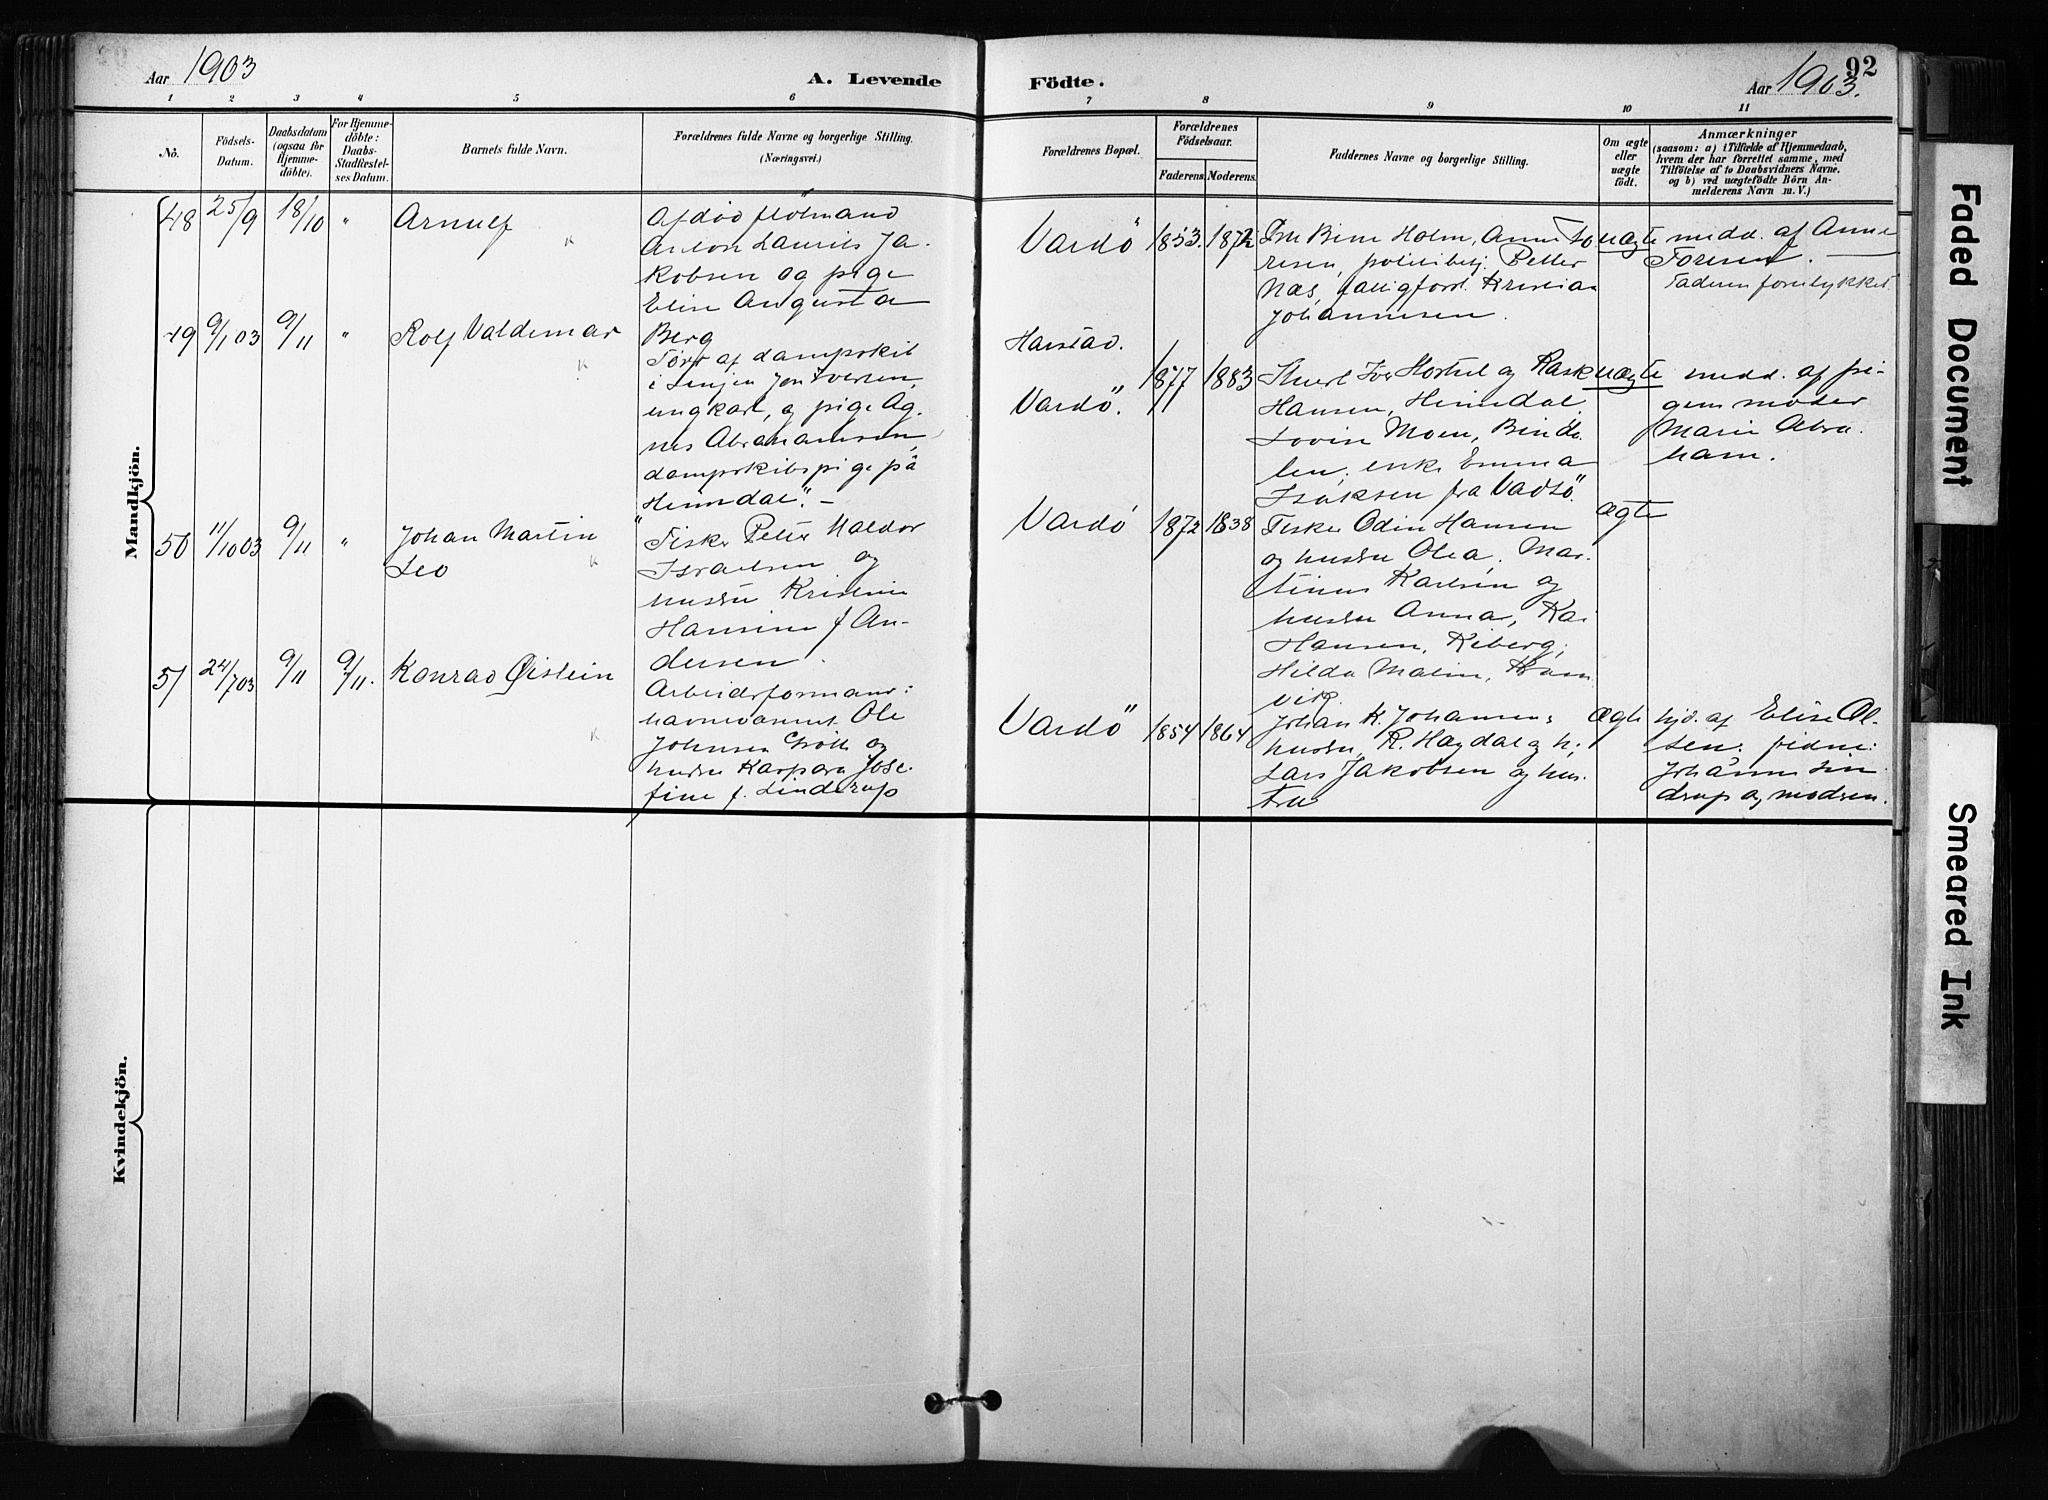 Aar 1903
A. Levende
Födte.
Aar 1903.
92
1 2 3 4 5 6 7 8 9 10 11
No.
Födsels-
Datum.
Daabsdatum
(ogsaa for
Hjemme-
döbte).
For Hjemme-
döbte:
Daabs-
Stadfæstel-
ses Datum.
Barnets fulde Navn.
Forældrenes fulde Navne og borgerlige Stilling.
(Næringsvei.)
Forældrenes Bopæl.
Forældrenes
Födselsaar.
Faderens. Moderens.
Faddernes Navne og borgerlige Stilling.
Om ægte
eller
uægte
födt.
Anmærkninger
(saasom: a) i Tilfælde af Hjemmedaab,
hvem der har forrettet samme, med
Tilföielse af to Daabsvidners Navne.
og b) ved uægtefödte Börn An-
melderens Navn m. V.)
Mandkjön.
48 25/9 18/10 " Arnulf
Afdöd
Anton Laurits Ja-
kobsen og pige
Elise Augusta
Berg
Vardö 1853. 1872
Holm, Anna To
resen, politibetj. Petter
Næs, Kristian
Johannesen.
uægte
medd. af Anna
Toresen. —
Faderen forulykket
49 9/1 03 9/11 " Rolf Valdemar
af dampskib
i Senjen Jon Iversen,
ungkarl, og pige Ag-
nes Abrahamsen,
dampskibspige på
"Heimdal". —
Harstad.
Vardö. 1877 1883
Iver og Rask
Hansen, Heimdal.
Lovise Moen, Binda-
len, enke Emma
Isaksen fra Vadsö.
uægte
medd. af pi-
gens moder
Marie Abra-
ham.
50 11/10 03 9/11 " Johan Martin
Leo
Fisker Peter Haldor
Israelsen og
hustru Kristine
Hansine f. An-
dersen.
Vardö 1872 1838
Fisker Odin Hansen
og hustru Olea, Mar-
tinus Karlsen og
hustru Anna, Kai
Hansen, Kiberg,
Hilda Malin, Ham-
vik.
ægte
51 24/7 03 9/11 9/11. Konrad Øistein
Arbeidsformand i
havnevæsnet Ole
Johnsen og
hustru Kaspara Jose-
fine f. Linderup
Vardö 1854 1864
Johan K. Johansen,
hustru, R. Hagdal og h;
Lars Jakobsen og hus-
tru
ægte
hjd. af Elise Ol-
sen: vidne:
Johanne Lin
drup og modren.
Kvindekjön.
Faded Document
Smeared Ink